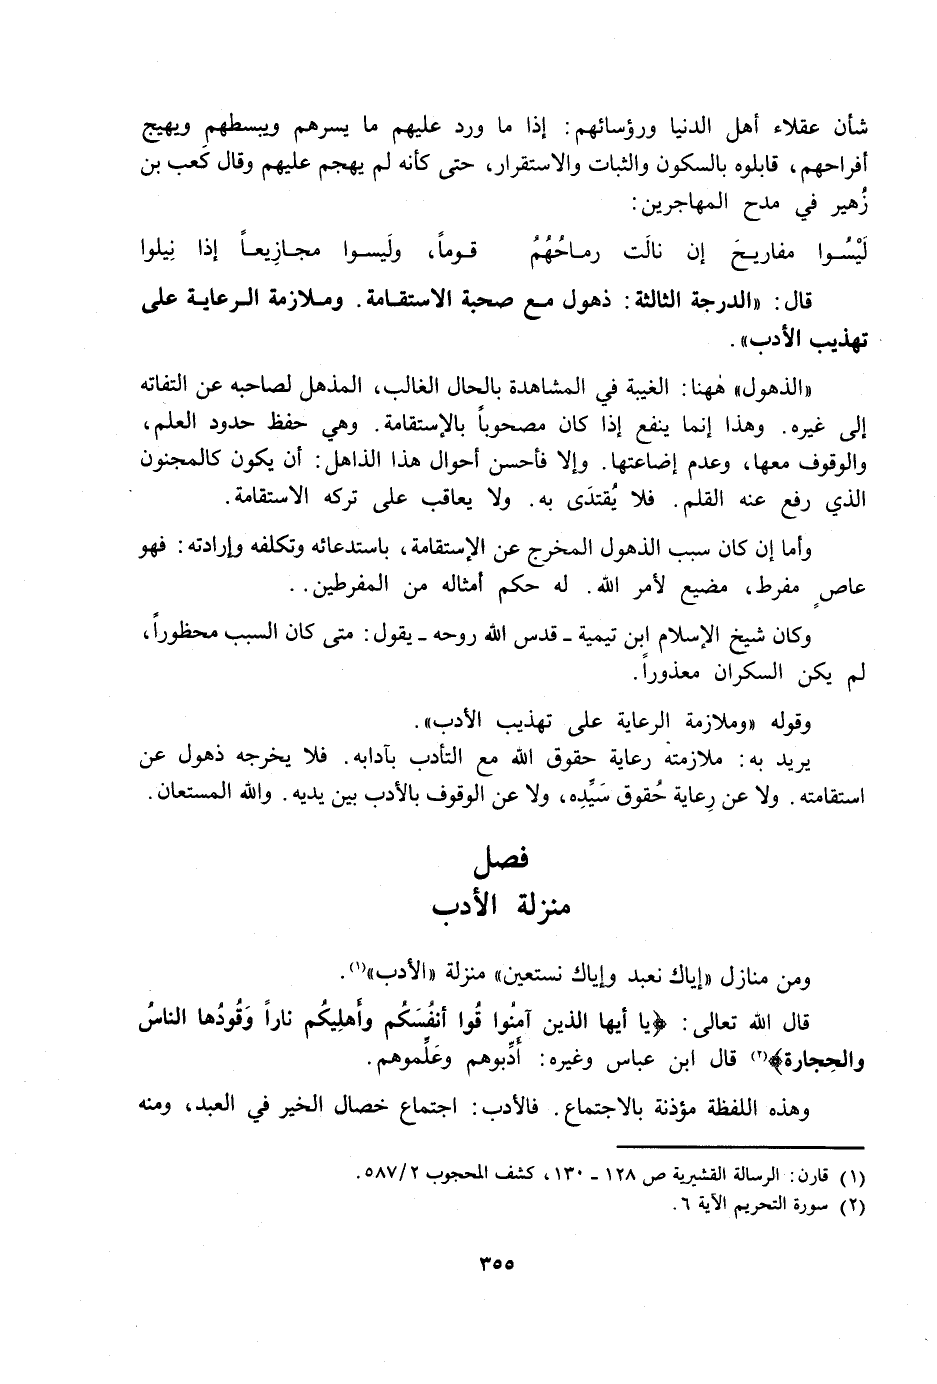 شأن عقلاء أهل الدنيا ورؤسائهم: إذا ما ورد عليهم ما يسرهم ويبسطهم ويهيج
أفراحهم، قابلوه بالسكون والثبات والاستقرار، حتى كأنه لم يهجم عليهم وقال كَعب بن
زُهير في مدح المهاجرين:
لَيْسُوا مفاريحَ إن نالَت رماحُهُمُ قوماً، ولَيسوا مجازِيعاً إذا نِيلوا
قال: «الدرجة الثالثة: ذهول مع صحبة الاستقامة. وملازمة الرعاية على
تهذيب الأدب».
«الذهول» هٰهنا: الغيبة في المشاهدة بالحال الغالب، المذهل لصاحبه عن التفاته
إلى غيره. وهذا إنما ينفع إذا كان مصحوباً بالإستقامة. وهي حفظ حدود العلم،
والوقوف معها، وعدم إضاعتها. وإلا فأحسن أحوال هذا الذاهل: أن يكون كالمجنون
الذي رفع عنه القلم. فلا يُقتدَى به. ولا يعاقب على تركه الاستقامة.
وأما إن كان سبب الذهول المخرج عن الإستقامة، باستدعائه وتكلفه وإرادته: فهو
عاصٍ مفرط، مضيع لأمر الله. له حكم أمثاله من المفرطين..
وكان شيخ الإسلام ابن تيمية ـ قدس الله روحه ـ يقول: متى كان السبب محظوراً،
لم يكن السكران معذوراً.
وقوله «وملازمة الرعاية على تهذيب الأدب».
يريد به: ملازمته رعاية حقوق الله مع التأدب بآدابه. فلا يخرجه ذهول عن
استقامته. ولا عن رِعاية حُقوق سَيِّدِه، ولا عن الوقوف بالأدب بين يديه. والله المستعان.
فصل
منزلة الأدب
ومن منازل «إياك نعبد وإياك نستعين» منزلة «الأدب»(١).
قال الله تعالى: ﴿يا أيها الذين آمنُوا قُوا أنفُسَكُم وأَهلِيكُم ناراً وَقُودُها الناسُ
والحِجارة﴾(٢) قال ابن عباس وغيره: أَدِّبوهم وعَلِّموهم.
وهذه اللفظة مؤذنة بالاجتماع. فالأدب: اجتماع خصال الخير في العبد، ومنه
(١) قارن: الرسالة القشيرية ص ١٢٨ ـ ١٣٠، كشف المحجوب ٢/ ٥٨٧.
(٢) سورة التحريم الآية ٦.
٣٥٥